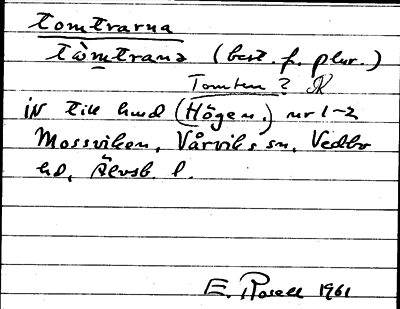 Tomtrarna
tòmtrana (best. f. plur.)
Tomten? R
iN till hmd (Högen.) nr 1-2
Mossviken, Vårviks sn, Vedbo
hd, Älvsb. l.
E. Rosell 1961